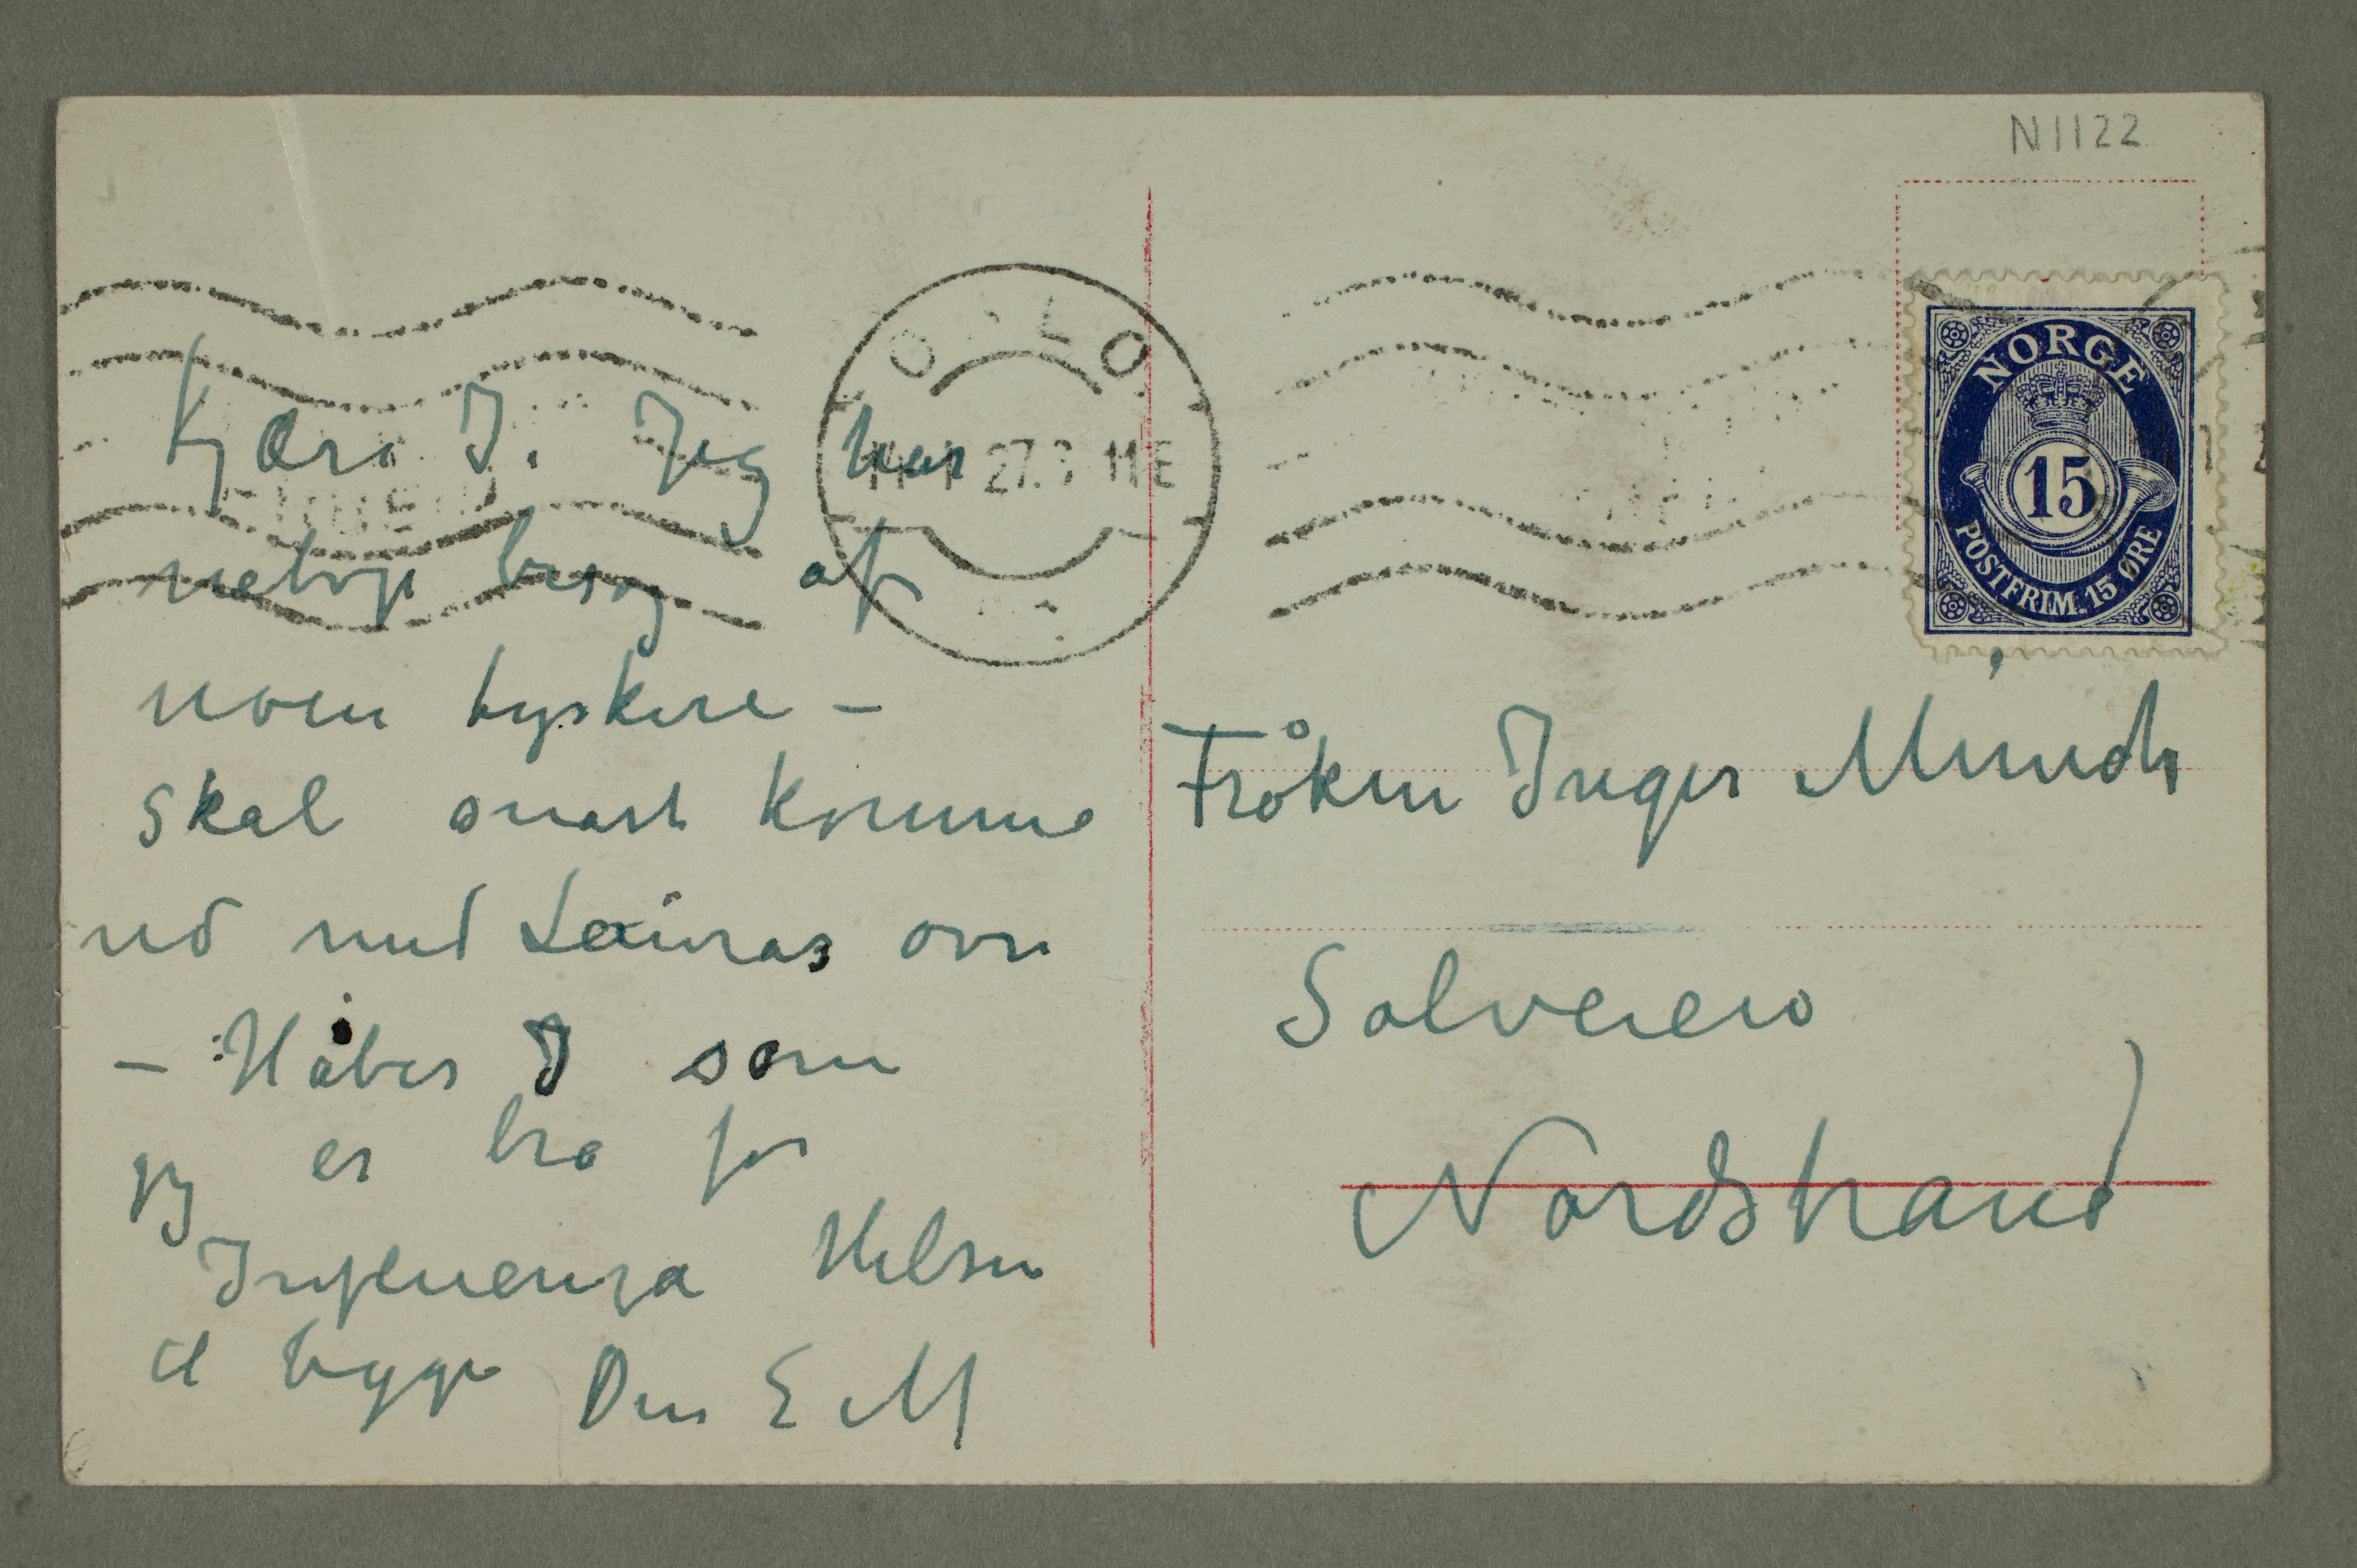 N1122
OSLO
27. 11 E
NORGE
15
POSTFRIM. 15 ØRE
Kjære I. Jeg har
netop besøg af
noen tyskere –
Skal snart komme
ud med Lauras ovn
– Håber I som
jeg er bra for
Influenza Hilsen
til begge Din E M
Frøken Inger Munch
Solveien
Nordstrand